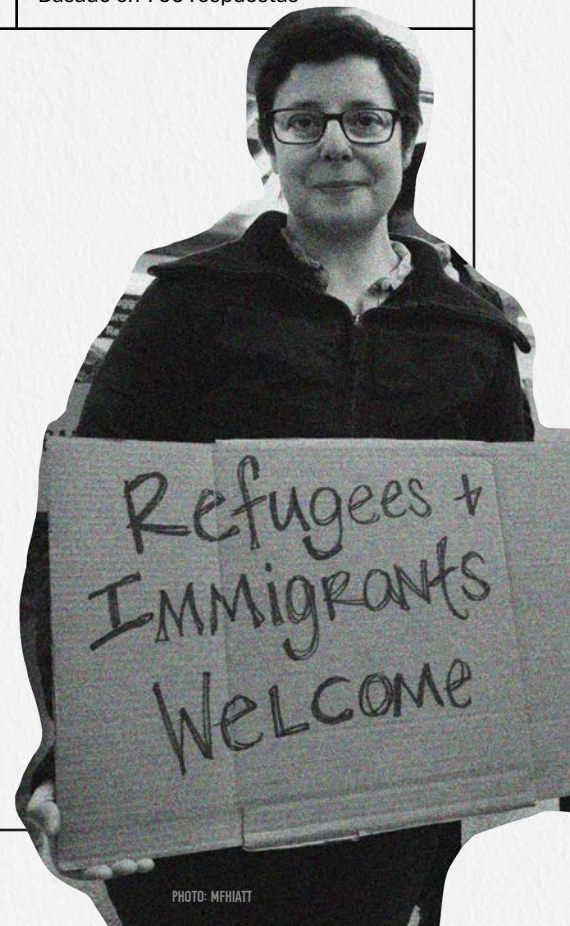 Refugees +
Immigrants
Welcome
PHOTO: MFHIATT